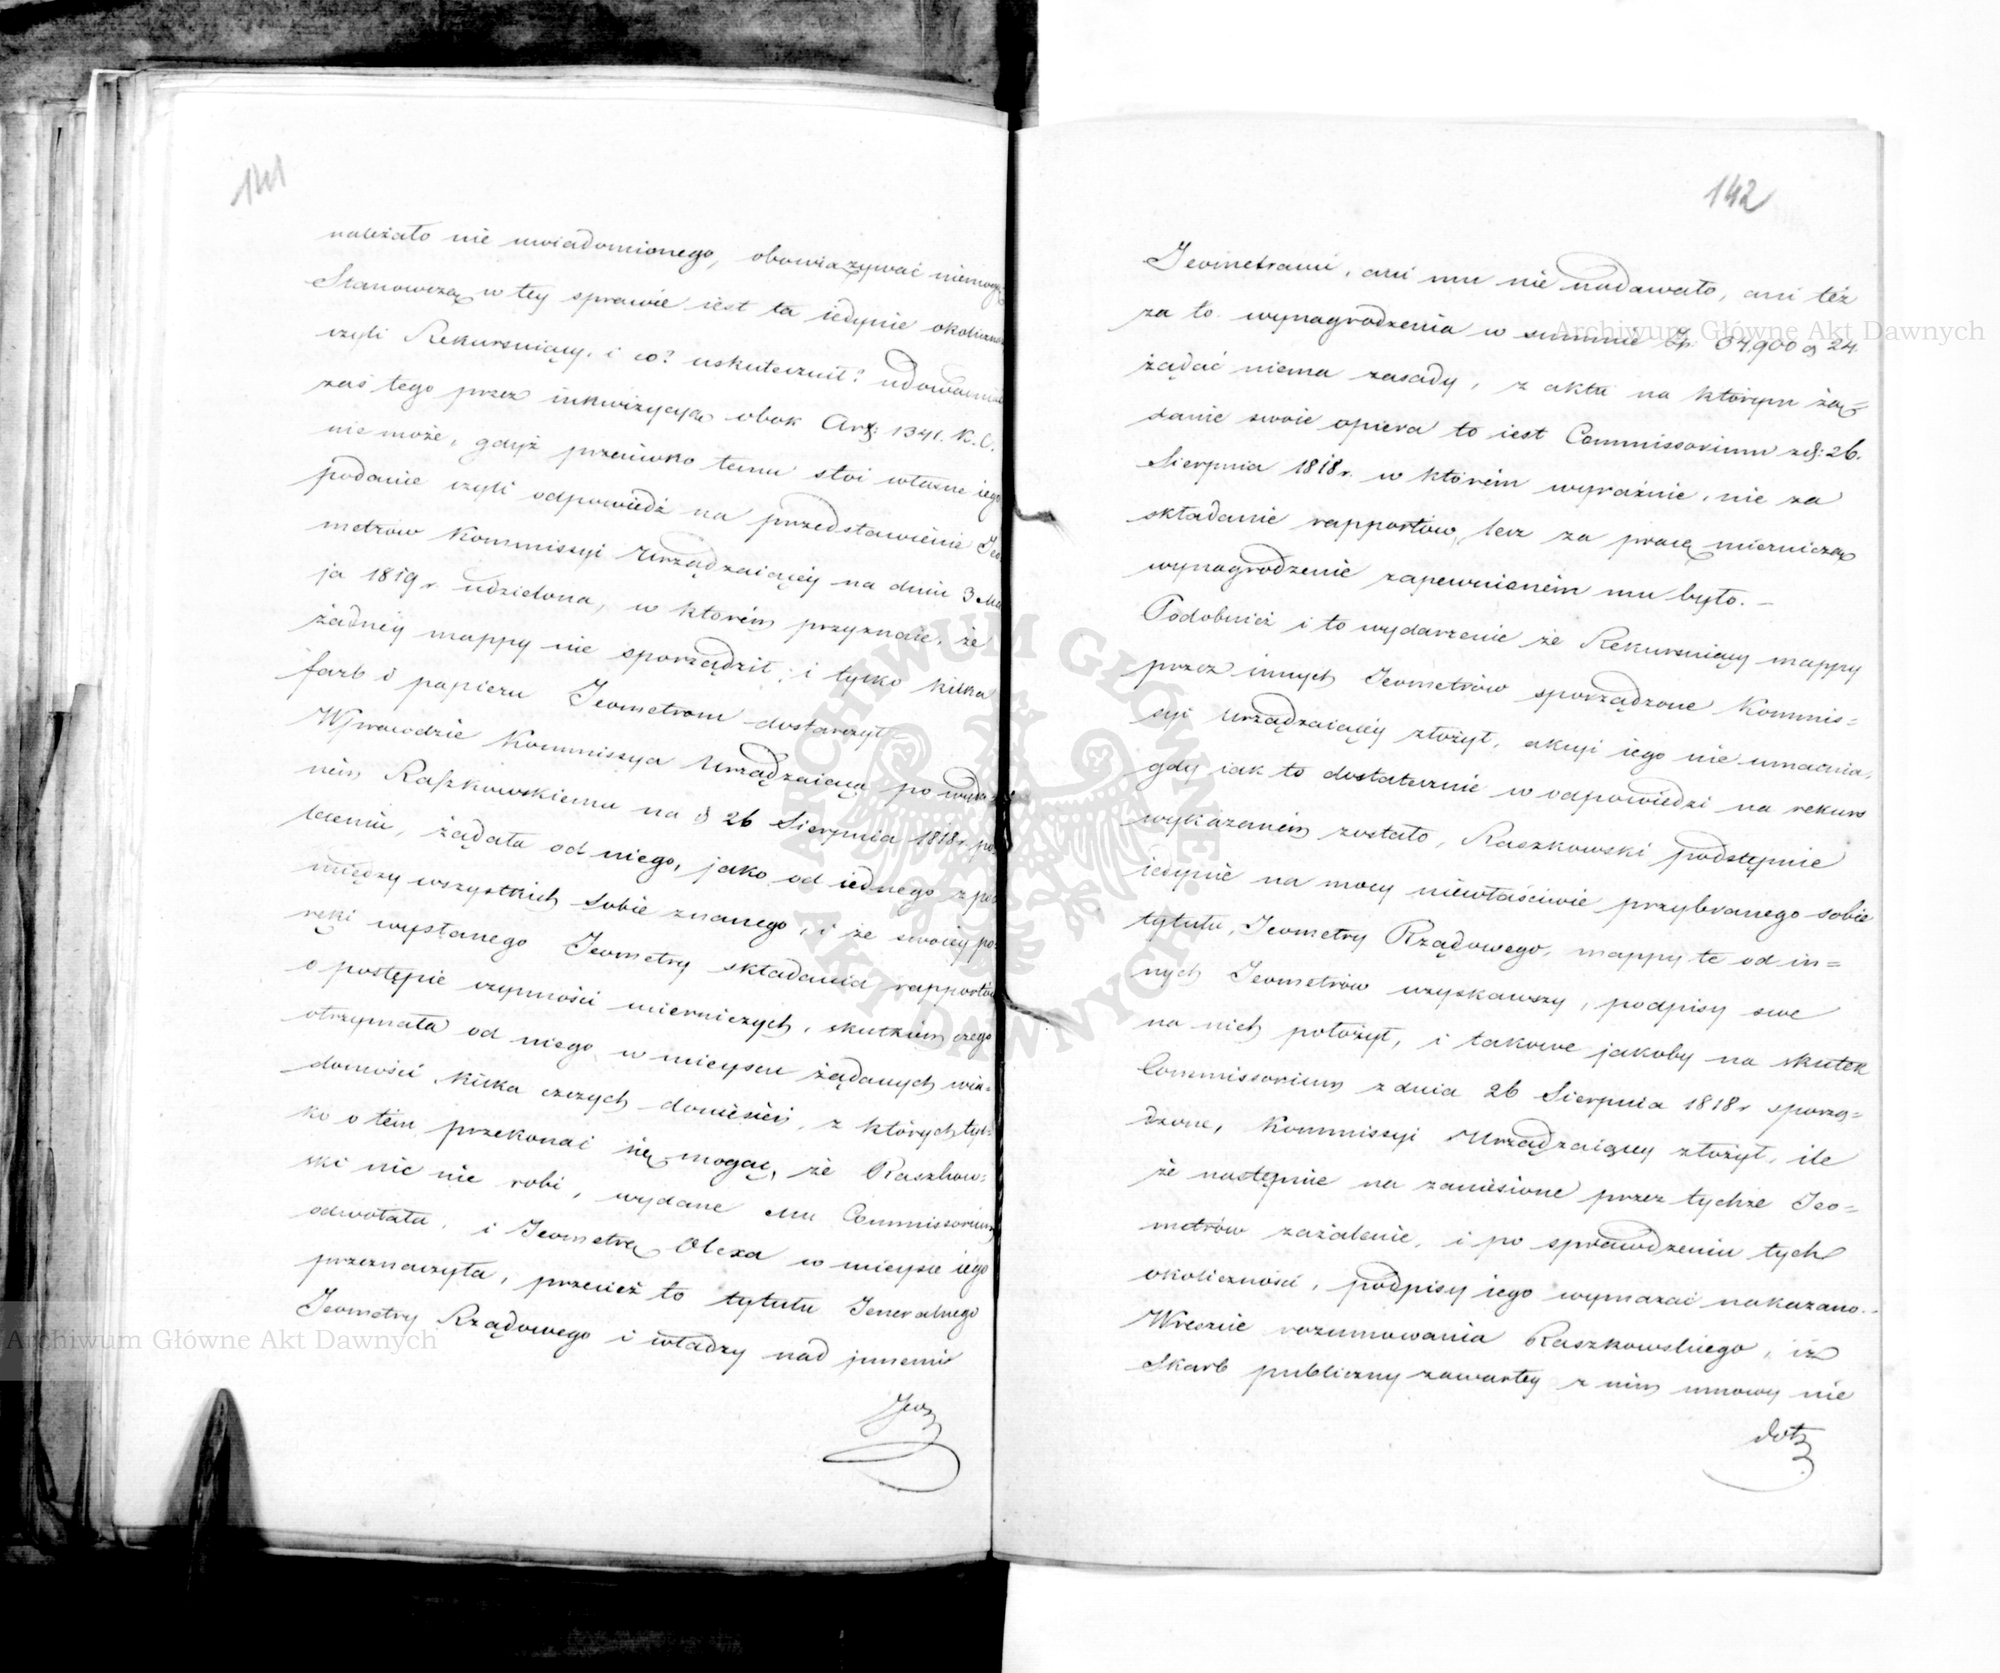 141
należało nie uwiadomionego, obowiązywać niemogą
Stanowczą w tey sprawie iest ta iedynie okoliczn
czyli Rekursuiący, i co? uskutecznił? udowadniać
zaś tego przez inkwizycyą obok Art: 1341. K. C.
nie może, gdyż przeciwko temu stoi własne iego
podanie czyli odpowiedź na przedstawienie Jeo
metrów Kommissyi Urządzaiącey na dniu 3 Ma
ja 1819 r. udzielona, w którém przyznaie, że
żadnéy mappy nie sporządził; i tylko kilka
farb i papieru Jeometrom dostarczył.
Wprawdzie Kommissya Urządzaiąca po wyda
niu Raszkowskiemu na d 26 Sierpnia 1818 r. po
leceniu, żądała od niego, jako od iednego z po
między wszystkich Sobie znanego, i ze swoiéy po
ręki wysłanego Jeometry składania rapportów
o postępie czynności mierniczych, skutkiem czego
otrzymała od niego w mieyscu żądanych wia=
domości, kilka czczych doniesień, z których tyl=
ko o tém przekonać się mogąc, że Raszkow=
ski nic nie robi, wydane mu Commissorium
odwołała, i Jeometrę Olexa w mieysce iego
przeznaczyła, przecież to tytułu Jeneralnego
Jeometry Rządowego i władzy nad innemi
Jeo
142
Jeometrami, ani mu nie nadawało, ani też
za to wynagrodzenia w summie Zł: 84,900 g 24.
żądać niema zasady, z aktu na którym żą=
danie swoie opiera to iest Commissorium z d: 26.
Sierpnia 1818 r. w którém wyraźnie, nie za
składanie rapportów, lecz za pracę mierniczą
wynagrodzenie zapewnioném mu było. –
Podobnież i to wydarzenie że Rekursuiący mappy
przez innych Jeometrów sporządzone Kommis=
syi Urządzaiącéy złożył, akcyi iego nie umacnia,
gdy iak to dostatecznie w odpowiedzi na rekurs
wykazaném zostało, Raszkowski podstępnie
iedynie na mocy niewłaściwie przybranego sobie
tytułu, Jeometry Rządowego, mappy te od in=
nych Jeometrów uzyskawszy, podpisy swe
na nich położył, i takowe jakoby na skutek
Commissorium z dnia 26 Sierpnia 1818 r sporzą=
dzone, Kommissyi Urządzaiącey złożył, ile
że następnie na zaniesione przez tychże Jeo=
metrów zażalenie, i po sprawdzeniu tych
okoliczności, podpisy iego wymazać nakazano.
Wreszcie rozumowania Raszkowskiego, iż
Skarb publiczny zawartey z nim umowy nie
dot